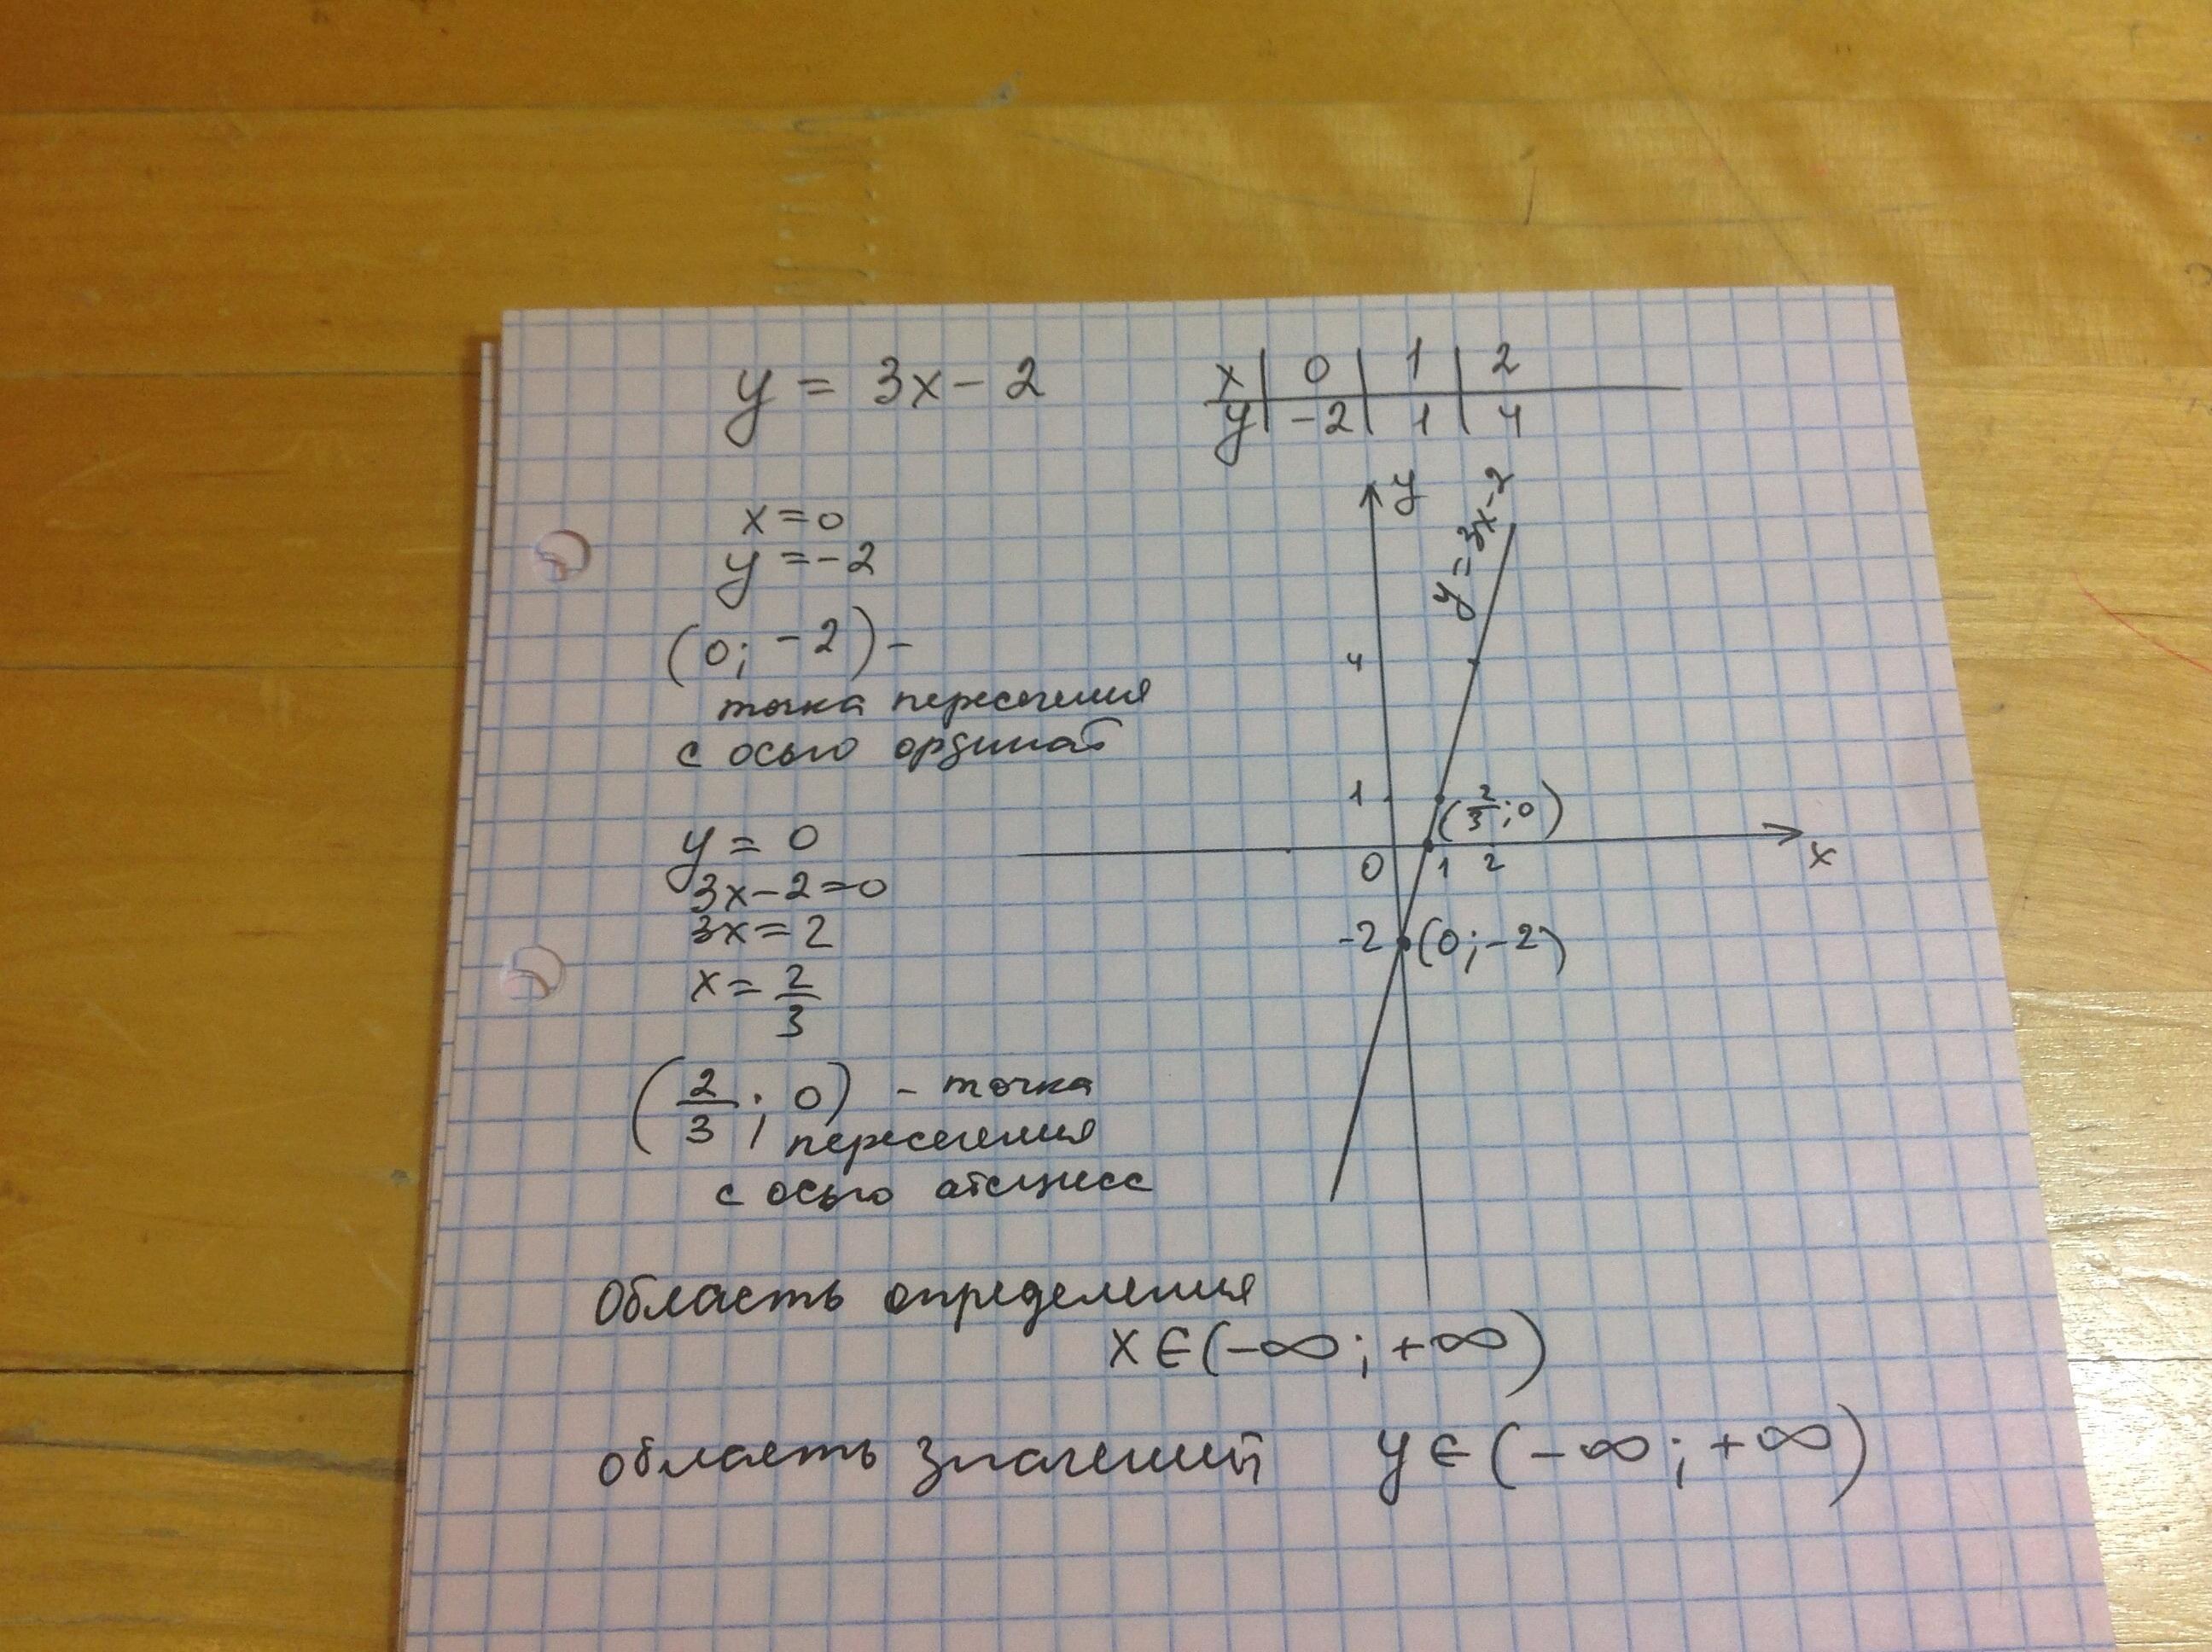 y = 3x - 2
x | 0 | 1 | 2
y | -2 | 1 | 4
x = 0
y = -2
(0; -2) -
точка пересечения
с осью ординат
y = 0
3x - 2 = 0
3x = 2
x = 2/3
(2/3; 0) - точка
пересечения
с осью абсцисс
y
y = 3x - 2
4
1
(2/3; 0)
0 1 2
x
-2 (0; -2)
Область определения
x ∈ (-∞; +∞)
область значений y ∈ (-∞; +∞)